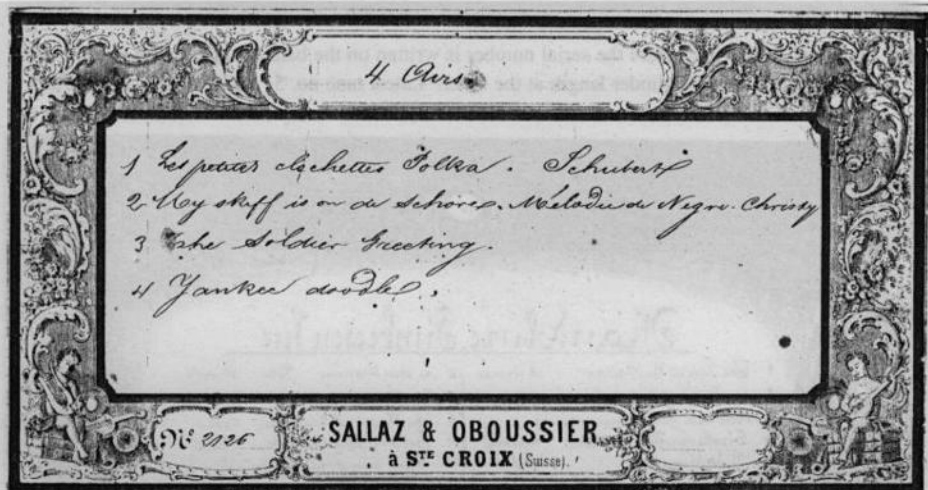 4 Airs
1 Les petites clochettes Polka. Schubert
2 My skiff is on de schore. Mélodie de Negre. Christy
3 The Soldier Greeting.
4 Yankee doodle.
No 2126
SALLAZ & OBOUSSIER
à STE CROIX (Suisse).